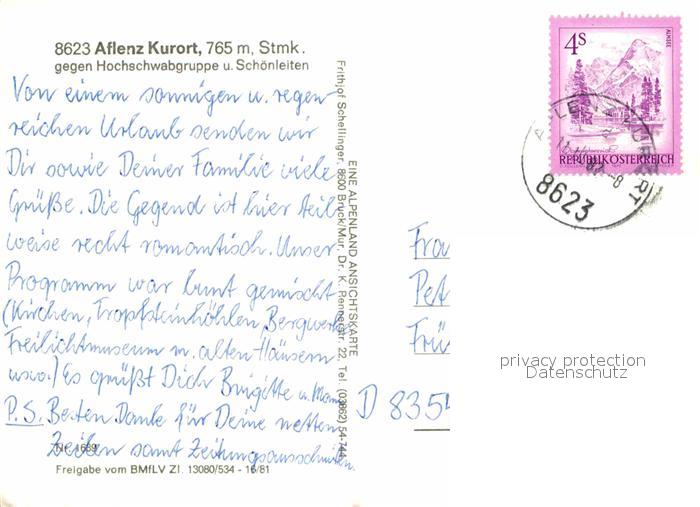 8623 Aflenz Kurort, 765 m, Stmk.
gegen Hochschwabgruppe u. Schönleiten
Von einem sonnigen u. regen-
reichen Urlaub senden wir
Dir sowie Deiner Familie viele
Grüße. Die Gegend ist hier teil-
weise recht romantisch. Unser
Programm war bunt gemischt
(Kirchen, Tropfsteinhöhlen Bergwerk
Freilichtmuseum m. alten Häusern
usw.) Es grüßt Dich Brigitte u. Mam
P.S. Besten Dank für Deine netten
Zeilen samt Zeitungsausschnitten.
Nr. 1689
Freigabe vom BMfLV Zl. 13080/534 - 16/81
EINE ALPENLAND ANSICHTSKARTE
Frithjof Schellinger, 8600 Bruck/Mur, Dr. K. Rennerstr. 22, Tel. (03862) 54-744
4S
ALMSEE
REPUBLIK ÖSTERREICH
AFLENZ KURORT
8623
Frau
Pet
Frü
D 835
privacy protection
Datenschutz